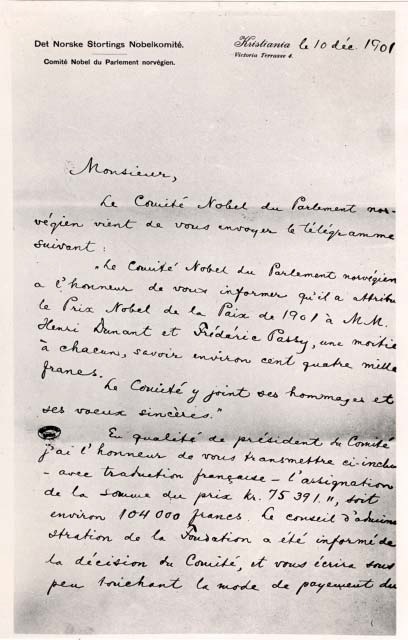 Det Norske Stortings Nobelkomité.
Comité Nobel du Parlement norvégien.
Kristiania le 10 déc. 1901
Victoria Terrasse 4.
Monsieur,
Le Comité Nobel du Parlement nor-
végien vient de vous envoyer le télégramme
suivant:
"Le Comité Nobel du Parlement norvégien
a l'honneur de vous informer qu'il a attribu
le Prix Nobel de la Paix de 1901 à M.M.
Henri Dunant et Frédéric Passy, une moitié
à chacun, savoir environ cent quatre mille
francs.
Le Comité y joint ses hommages et
ses voeux sincères."
En qualité de président du Comité
j'ai l'honneur de vous transmettre ci-inclus
– avec traduction française – l'assignation
de la somme du prix kr. 75 391. ", soit
environ 104 000 francs. Le conseil d'admini
stration de la Fondation a été informé de
la décision du Comité, et vous écrira sous
peu touchant la mode de payement du